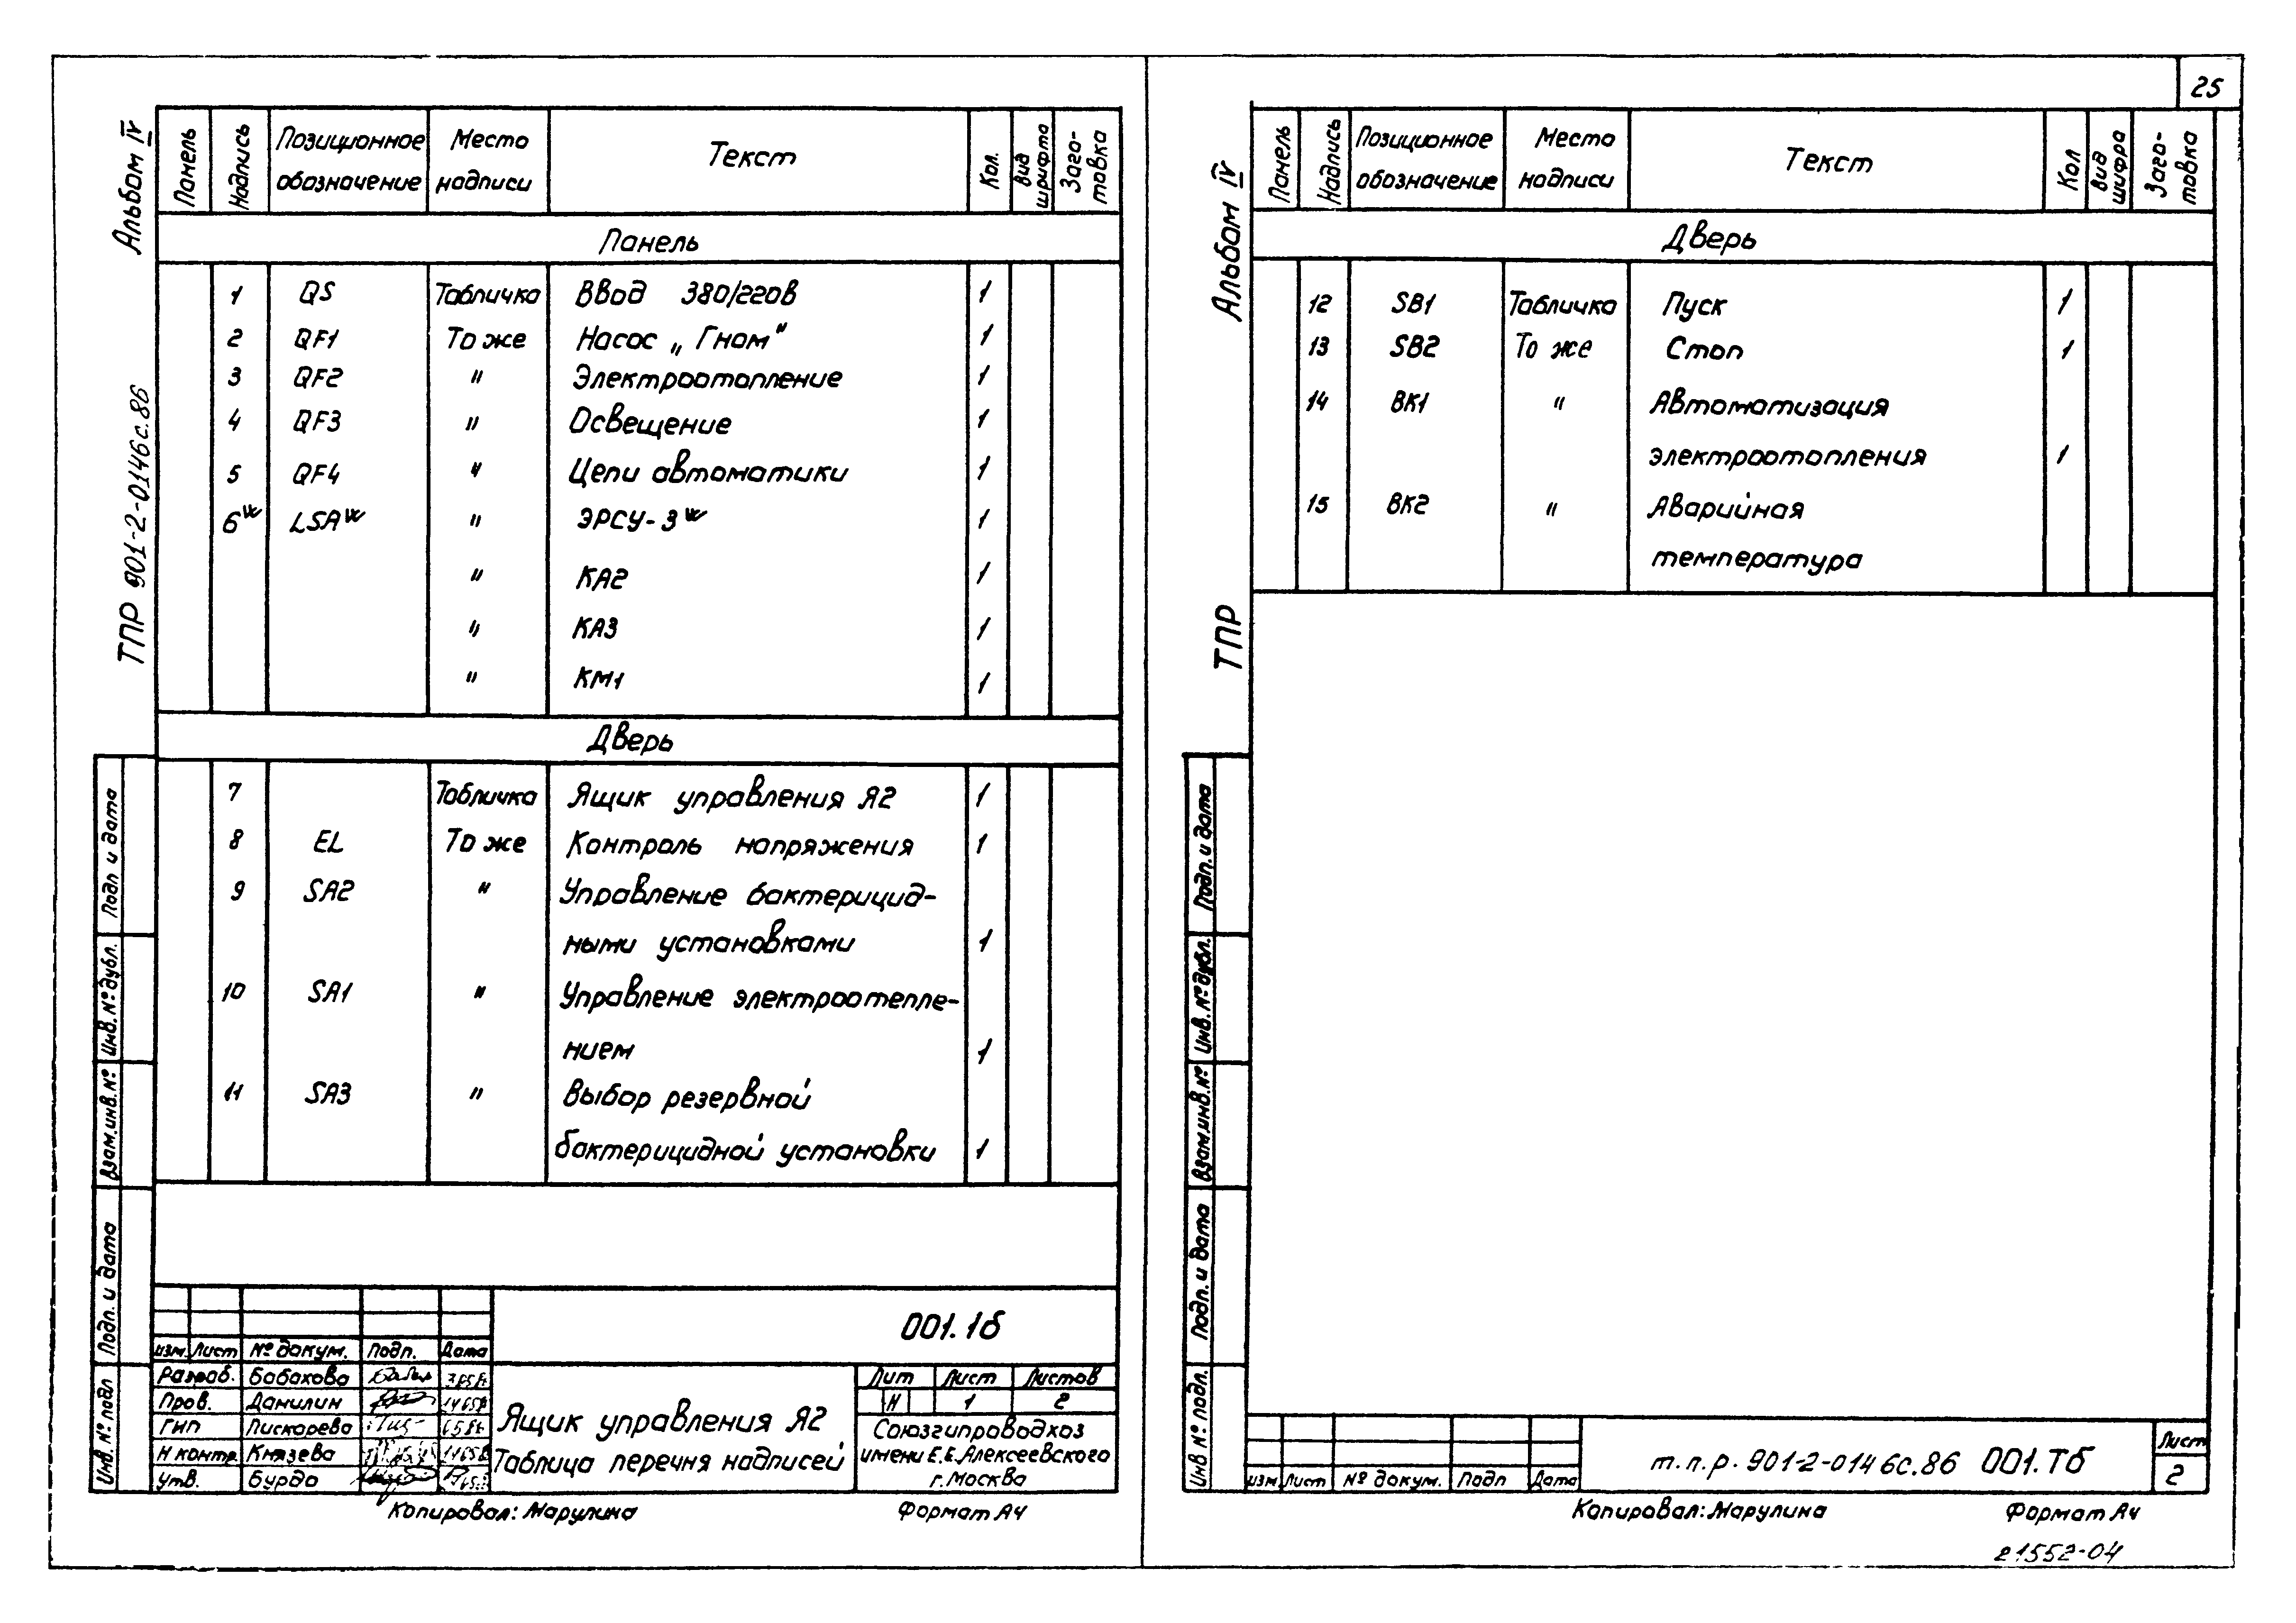 25
Альбом IV
ТПР 901-2-0146с.86
Панель Надпись Позиционное обозначение Место надписи Текст Кол. Вид шрифта Заго-товка
Панель
1 QS Табличка Ввод 380/220В 1
2 QF1 То же Насос „Гном" 1
3 QF2 " Электроотопление 1
4 QF3 " Освещение 1
5 QF4 " Цепи автоматики 1
6 LSA " ЭРСУ-3 1
" КА2 1
" КА3 1
" КМ1 1
Дверь
7 Табличка Ящик управления Я2 1
8 EL То же Контроль напряжения 1
9 SA2 " Управление бактерицид-
ными установками 1
10 SA1 " Управление электроотепле-
нием 1
11 SA3 " Выбор резервной
бактерицидной установки 1
Подп и дата
Инв. № дубл.
Взам.инв.№
Подп. и дата
Инв. № подл
001.1б
изм. Лист № докум. Подп. Дата
Разраб. Бабахова
Пров. Данилин
ГИП Пискарева
Н контр. Князева
Утв. Бурдо
Ящик управления Я2
Таблица перечня надписей
Лит Лист Листов
И 1 2
Союзгипроводхоз
имени Е.Е.Алексеевского
г.Москва
Копировал: Марулина Формат А4
Альбом IV
ТПР
Панель Надпись Позиционное обозначение Место надписи Текст Кол Вид шифра Заго-товка
Дверь
12 SB1 Табличка Пуск 1
13 SB2 То же Стоп 1
14 ВК1 " Автоматизация
электроотопления 1
15 ВК2 " Аварийная
температура
Подп. и дата
Инв. № дубл.
Взам.инв.№
Подп. и дата
Инв № подл.
изм. Лист № докум. Подп Дата
т.п.р. 901-2-0146с.86 001.Тб
Лист
2
Копировал: Марулина Формат А4
21552-04